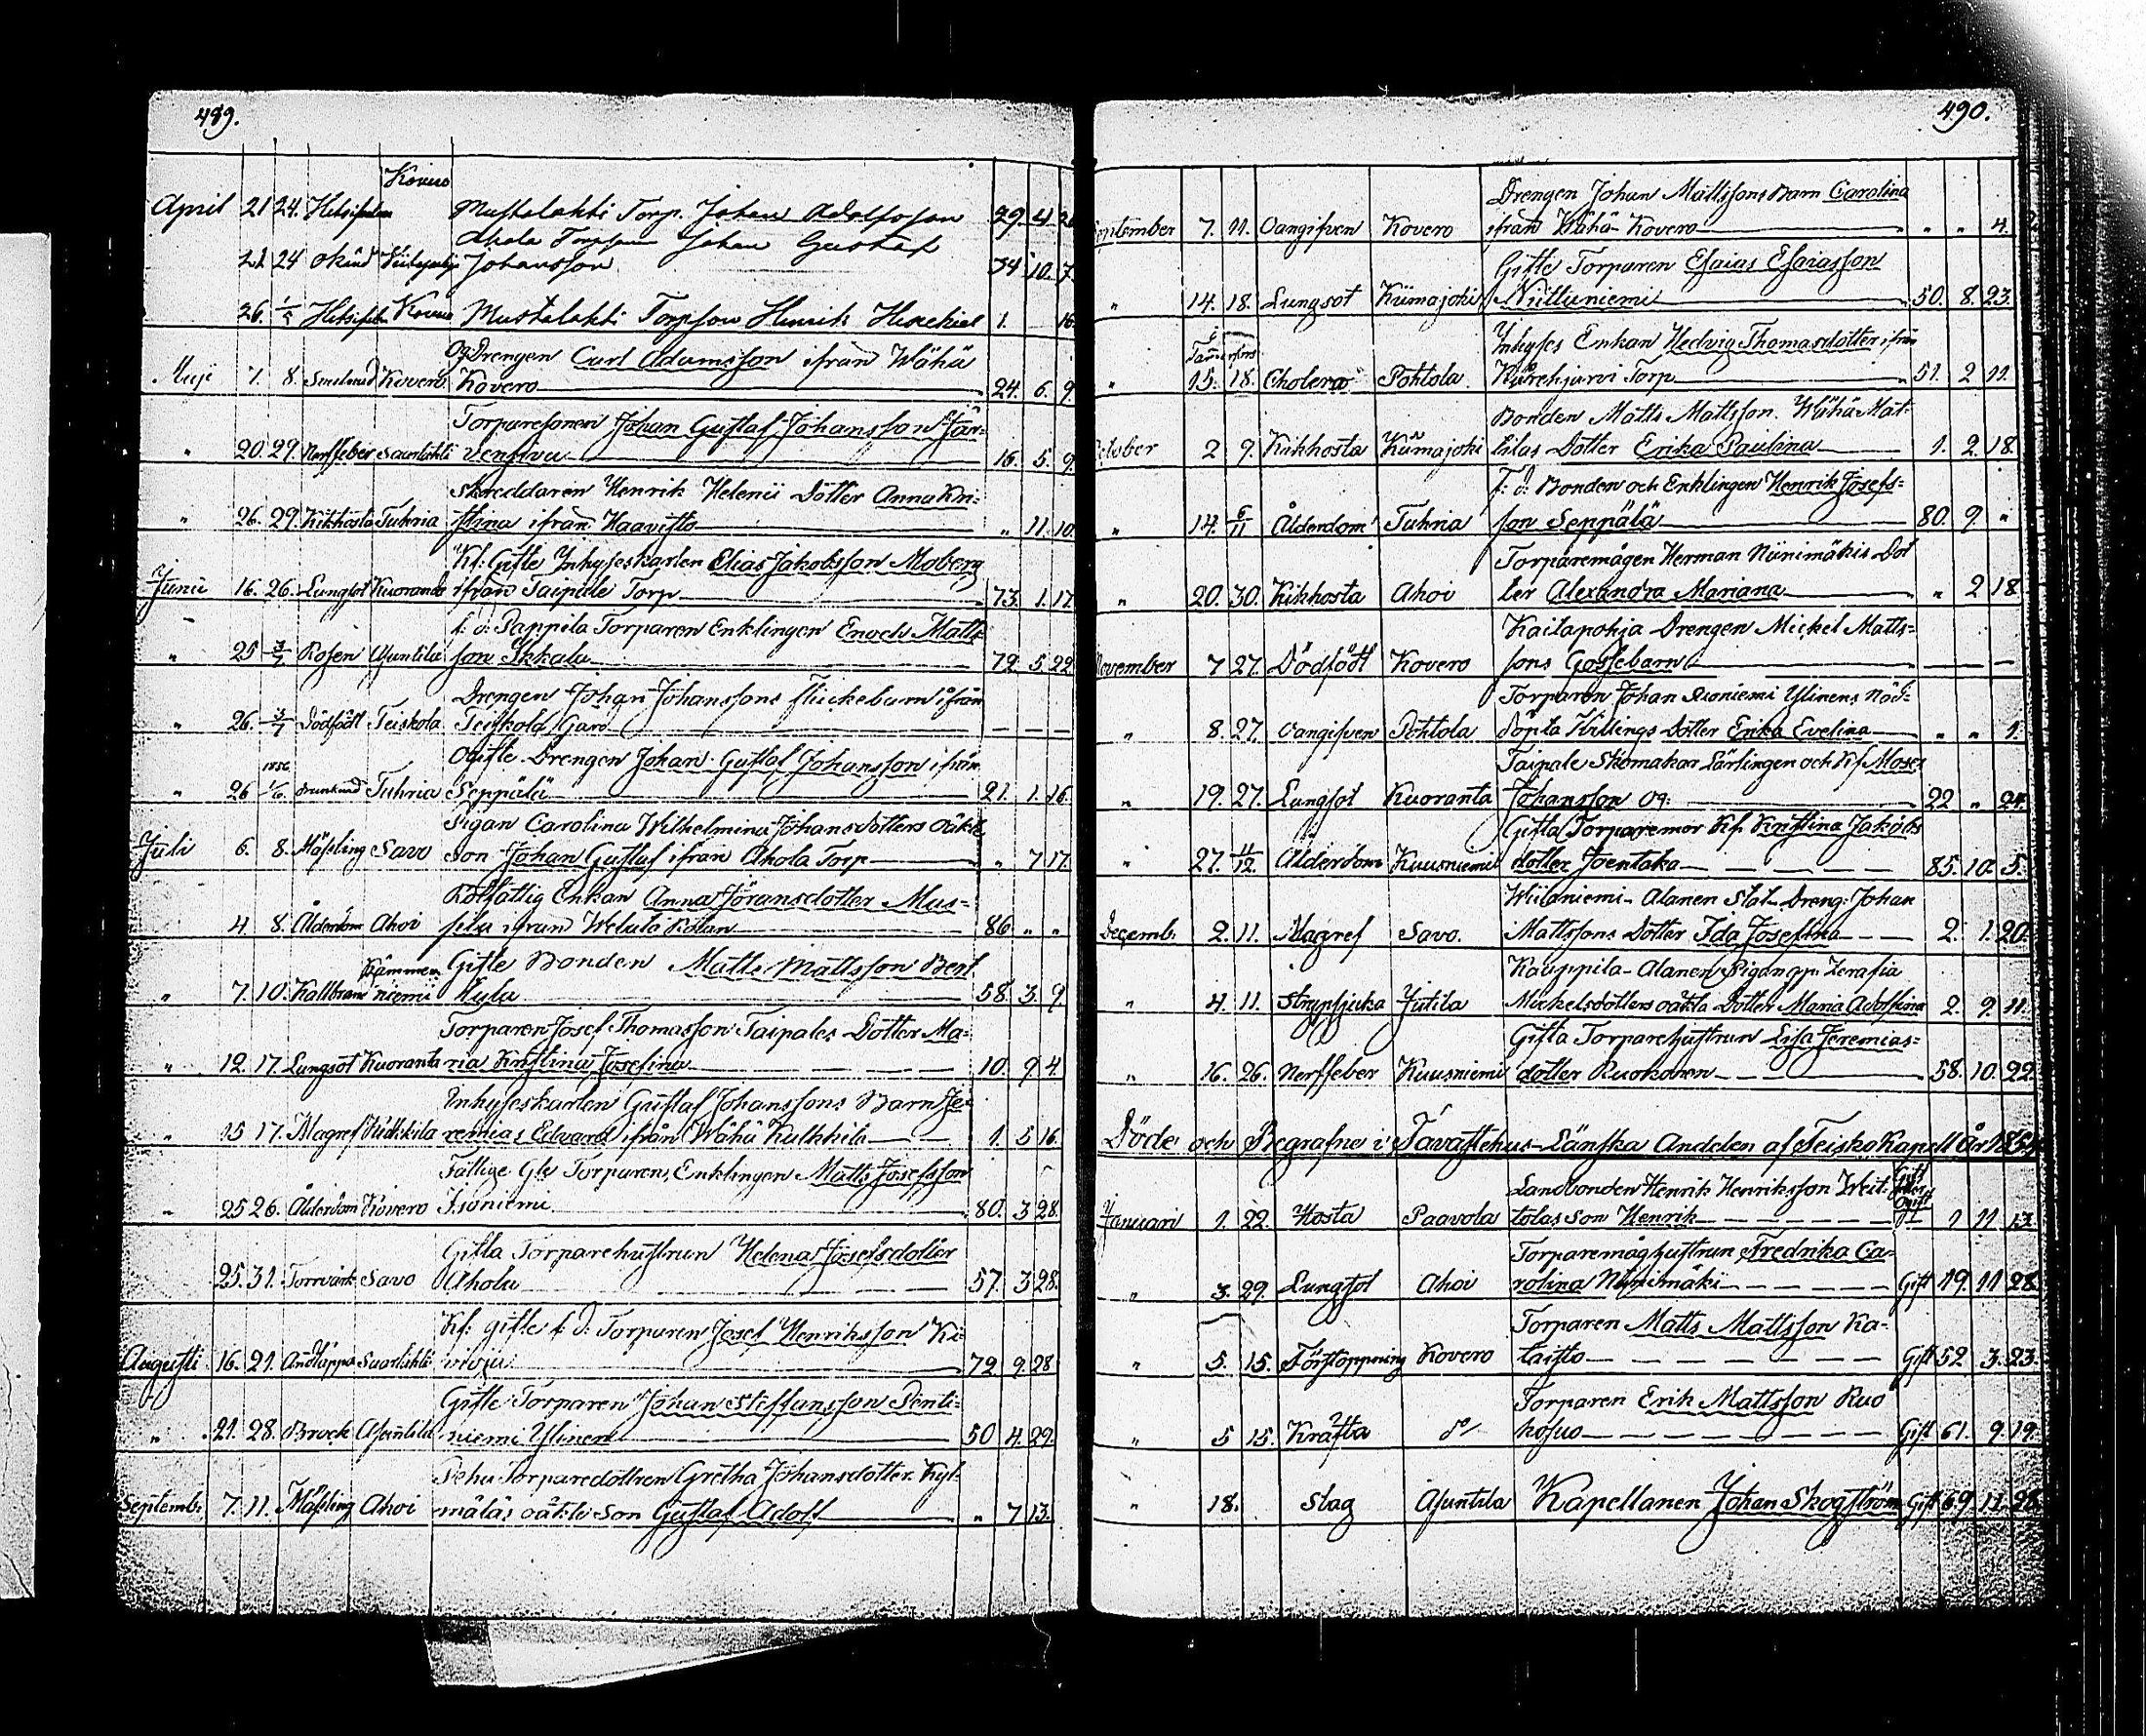 489.
Kovero
April 21 24. Hetsifeber Mustalahti Torp. Johan Adolfsson 29. 4.
Ahola Torpson Johan Gustaf
21 24 okänd Johansson 34 10. 7
26. 1/5 Hetsifeber Kovero Mustalahti Torpson Henrik Hesekiel 1. 16.
Og Drengen Carl Adamsson ifrån Wähä
Maji 7. 8. Kovero Kovero 24. 6. 9.
Torparesonen Johan Gustaf Johansson Jär-
" 20. 29. Nerffeber Saarlahti venpää 16. 5. 9.
Skreddaren Henrik Helenii Dotter Anna Kri-
" 26. 29. Kikhosta Tuhria stina ifrån Haavisto " 11. 10.
Kf: Gifte Inhyseskarlen Elias Jakobsson Moberg
Junii 16. 26. Lungsot Kuoranda ifrån Taipale Torp 73. 1. 17.
f: d: Pappila Torparen Enklingen Enoch Matts-
" 25 3/7 Rosen Asuntila son Ikkala 72. 5 22
Drengen Johan Johanssons flickebarn ifrån
" 26. 3/7 Dödfödt Teiskola Teiskola Gård — — —
1856 Ogifte Drengen Johan Gustaf Johansson ifrån
" 26 1/6. Drunknad Tuhria Seppälä 21. 1. 16.
Pigan Carolina Wilhelmina Johansdotters oäkta
Juli 6. 8. Mässling Savo son Johan Gustaf ifrån Ahola Torp " 7 17.
Rotfattig Enkan Anna Jöransdotter Mus-
" 4 8. Ålderdom Ahoi sila ifrån Welaatä Rotan 86 " "
Kämmen Gifte Bonden Matts Mattsson Best
" 7. 10. Kallbrand niemi Kyla 58. 3. 9
Torparen Josef Thomasson Taipales Dotter Ma-
" 12. 17. Lungsot Kuoranta ria Kristina Josefina 10. 9 4
Inhyseskarlen Gustaf Johanssons Barn Je-
" 15 17. Magref Kulkkila remias Edvard ifrån Wähä Kulkkila 1. 5 16.
Fattige Gle Torparen, Enklingen Matts Josefsson
" 25 26. Ålderdom Kovero Isoniemi 80. 3 28.
Gifta Torparehustrun Helena Josefsdotter
25. 31. Torrvärk Savo Ahola 57. 3 28.
Kf: gifte f. d: Torparen Josef Henriksson Ki-
Augusti 16. 21. Andtäppa Saarlahti vioja 72. 9. 28
Gifte Torparen Johan Steffansson Penti-
" 21. 28. Brock Asuntila niemi Ylinen 50 4. 29.
Pehu Torparedottren Gretha Johansdotter Kyl-
Septemb: 7. 11. Mässling Ahoi mäläs oäkta Son Gustaf Adolf " 7 13.
490.
Drengen Johan Mattssons Barn Carolina
September 7. 11. Oangifven Kovero ifrån Wähä-Kovero " " 4.
Gifte Torparen Esaias Esaiasson
" 14. 18. Lungsot Kiimajoki Niittuniemi 50. 8. 23.
i Tamerfors Inhyses Enkan Hedvig Thomasdotter ifrån
" 15. 18. Cholera Pohtola Kärehjarvi Torp 51. 2 11.
Bonden Matts Mattsson Wähä Mat-
October 2 9. Kikhosta Kiimajoki tilas Dotter Erika Paulina 1. 2. 18.
f: d: Bonden och Enklingen Henrik Josefs-
" 14. 6/11 Ålderdom Tuhria son Seppälä 80. 9. "
Torparemågen Herman Niinimäkis Dot
" 20. 30. Kikhosta Ahoi ter Alexandra Mariana " 2 18
Kailapohja Drengen Mickel Matts-
November 7 27. Dödfödt Kovero sons Gossebarn — — —
Torparen Johan Isoniemi Ylinens Nöd-
" 8. 27. oangifven Pohtola döpta Tvillings Dotter Erika Evelina " " 1.
Taipale Skomakar Lärlingen och Kf Moses
" 19. 27. Lungsot Kuoranta Johansson Og: 22 " 24.
Gifta Torparemor Kf. Kristina Jakobs
" 27. 11/12. Ålderdom Kuusniemi dotter Joentaka 85. 10. 5.
Wiidaniemi-Alanen Stat-Dreng: Johan
Decemb: 2. 11. Magref Savo. Mattssons Dotter Ida Josefina 2. 1. 20.
Kauppila-Alanen Pigan gp. Zerafia
" 4. 11. Strypsjuka Jutila Mickelsdotters oäkta Dotter Maria Adolfina 2. 9 11
Gifta Torparehustrun Lisa Jeremias-
" 16. 26. Nerffeber Kuusniemi dotter Ruokonen 58. 10. 22.
Döde och Begrafne i Tavastehus-Länska Andelen af Teisko Kapell År 1854
Landbonden Henrik Henriksson Weit- Gift eller Ogift
Januari 1. 22. Hosta Paavola tolas son Henrik 1 11 13.
Torparemåghustrun Fredrika Ca-
" 3. 29. Lungsot Ahoi rolina Niinimäki Gift 19. 11 28.
Torparen Matts Mattsson Ka-
" 5. 15. Förstoppning Kovero taisto Gift 52 3. 23.
Torparen Erik Mattsson Ruo
" 5 15. Kräfta do kosuo Gift 61. 9. 19.
" 18. Slag Asuntila Kapellanen Johan Skogström Gift 69. 11. 28.